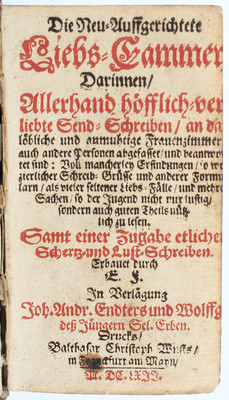 Die Neu-Auffgerichtete
Liebs-Cammer
Darinnen/
Allerhand höfflich-ver
liebte Send-Schreiben/ an da
löbliche und anmuhtige Frauenzimmer
auch andere Personen abgefasset/ und beantwor
tet sind: Voll mancherley Erfindungen/
zierlicher Schreib-Grüsse und anderer Formu
larn/ als vieler seltener Liebs-Fälle/ und mehre
Sachen/ so der Jugend nicht nur lustig/
sondern auch guten Theils nütz-
lich zu lesen.
Samt einer Zugabe etlicher
Schertz-und Lust-Schreiben.
Erbauet durch
E. J.
In Verlägung
Joh. Andr. Endters und Wolffg
deß Jüngern Sel. Erben.
Drucks/
Balthasar Christoph Wusts/
in Franckfurt am Mayn/
M. DC. LXII.